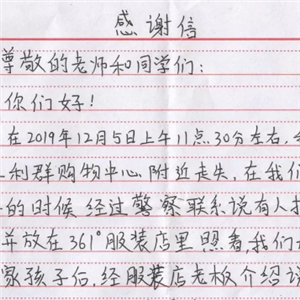 感谢信
尊敬的老师和同学们：
你们好！
在2019年12月5日上午11点30分左右，
利群购物中心附近走失，在我们
的时候经过警察联系说有人
并放在361°服装店里照看，我们
家孩子后，经服装店老板介绍